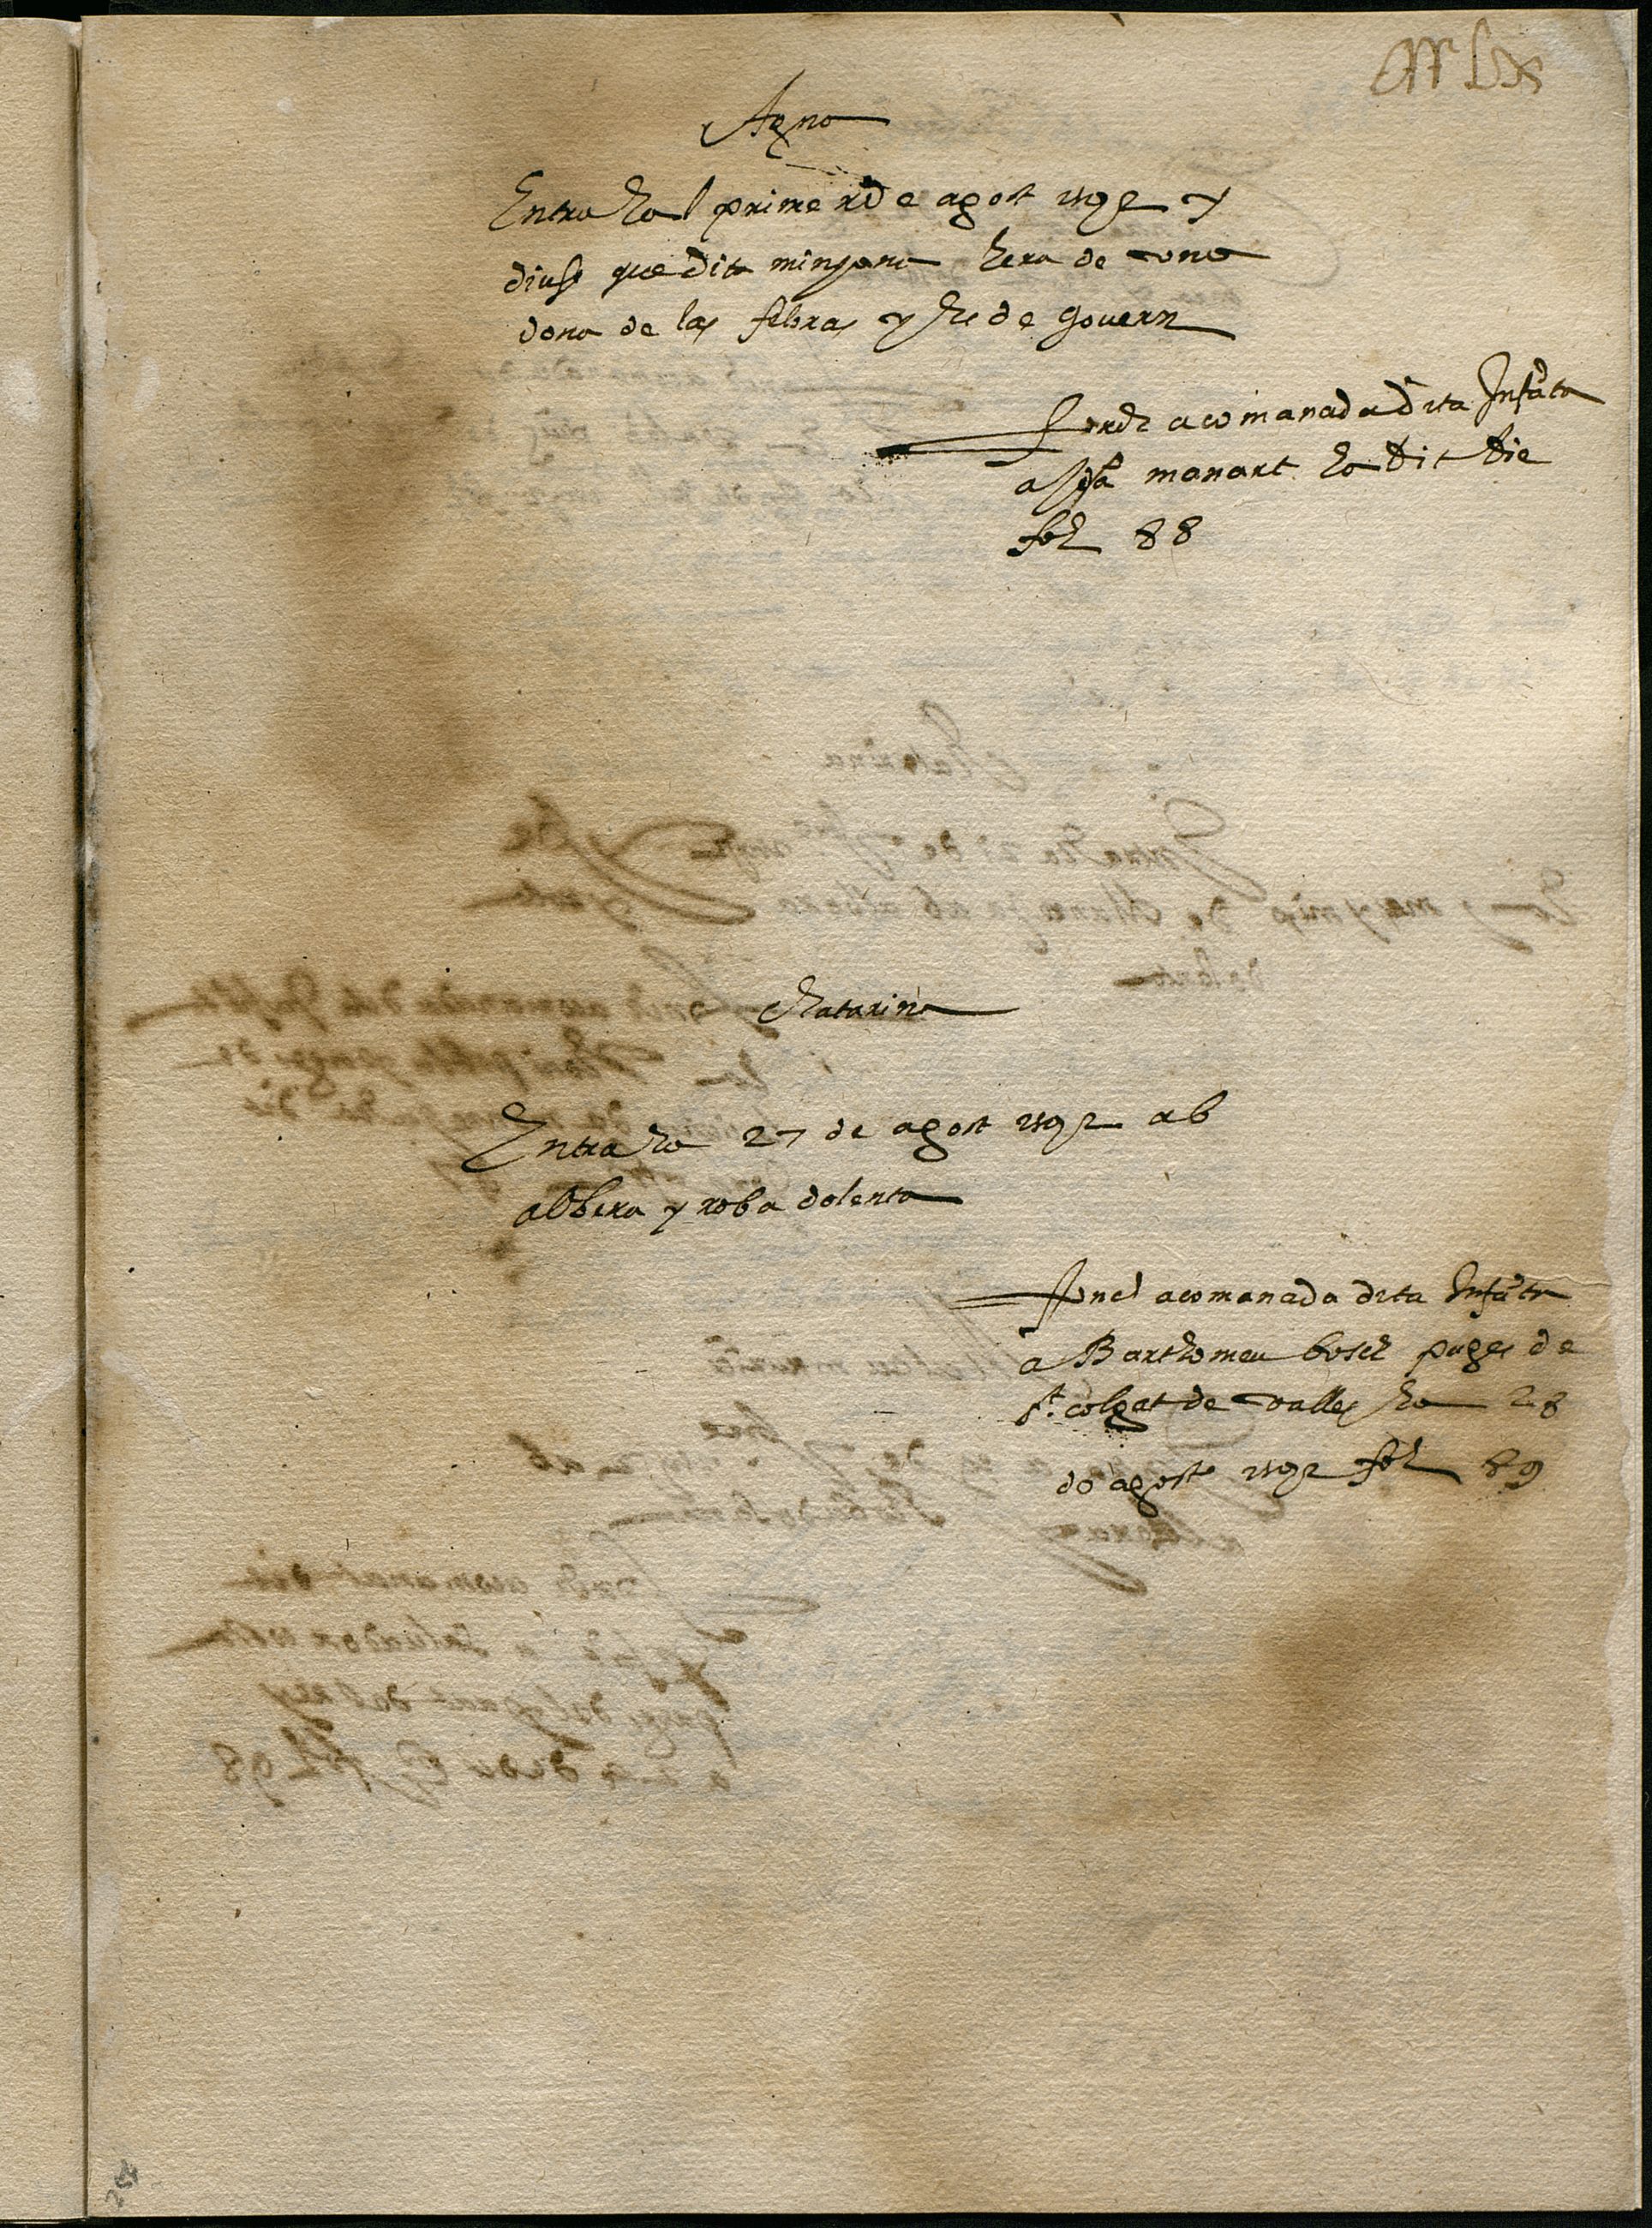 Agna
Entra lo primer de agost 1592 y
diuse que dita minyona hera de una
dona de las febras y he de govern
Fonch acomanada dita Infata
a manart lo dit die
fol 88
Catarina
Entra lo 27 de agost 1592 ab
albera y roba dolenta
Fonch acomanada dita Infata
a Barthomeu bosch pages de
St. colgat de valles lo 28
de agost 1592 fol 89